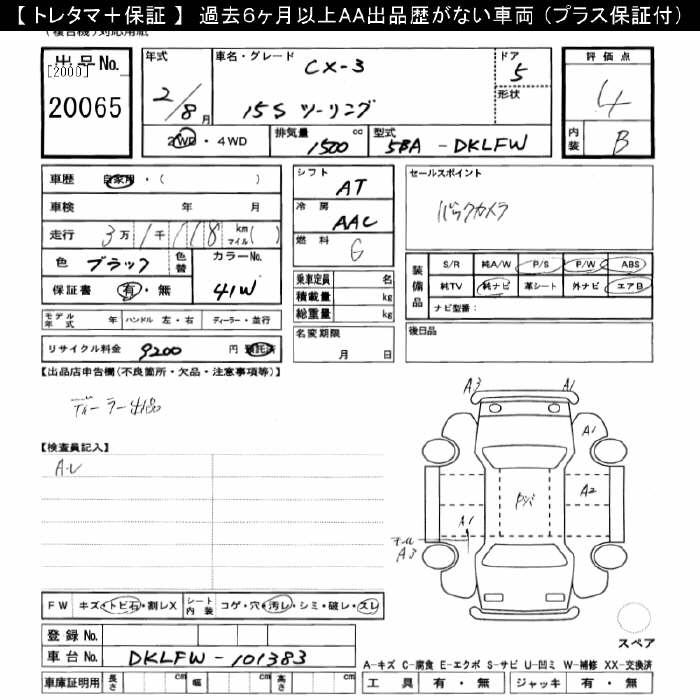 【 トレタマ＋保証 】 過去6ヶ月以上AA出品歴がない車両 (プラス保証付)
(複合機)対応用紙
出品No.
[2000]
20065
年式
2/8月
車名・グレード
CX-3
15S ツーリング
ドア
5
形状
評価点
4
内装
B
2WD・4WD
排気量
1500
cc
型式
5BA -DKLFW
車歴
自家用・( )
車検 年 月
走行 3万1千118 km マイル( )
色 ブラック
色替
カラーNo.
41W
保証書 有・無
モデル年式 年
ハンドル 左・右
ディーラー・並行
リサイクル料金 9200 円 預託済
シフト
AT
冷房
AAC
燃料
G
乗車定員 名
積載量 kg
総重量 kg
名変期限
月 日
セールスポイント
バックカメラ
装備品
S/R 純A/W P/S P/W ABS
純TV 純ナビ 革シート 外ナビ エアB
ナビ型番：
後日品
【出品店申告欄(不良箇所・欠品・注意事項等)】
ディーラー出品
【検査員記入】
A-U
A3
A1
A1
A2
A1
A3
FW キズ・トビ石・割レX
シート内装 コゲ・穴・汚レ・シミ・破レ・スレ
登録No.
車台No. DKLFW-101383
車庫証明用 長さ cm 幅 cm 高さ cm
スペア
A-キズ C-腐食 E-エクボ S-サビ U-凹ミ W-補修 XX-交換済
工具 有・無 ジャッキ 有・無